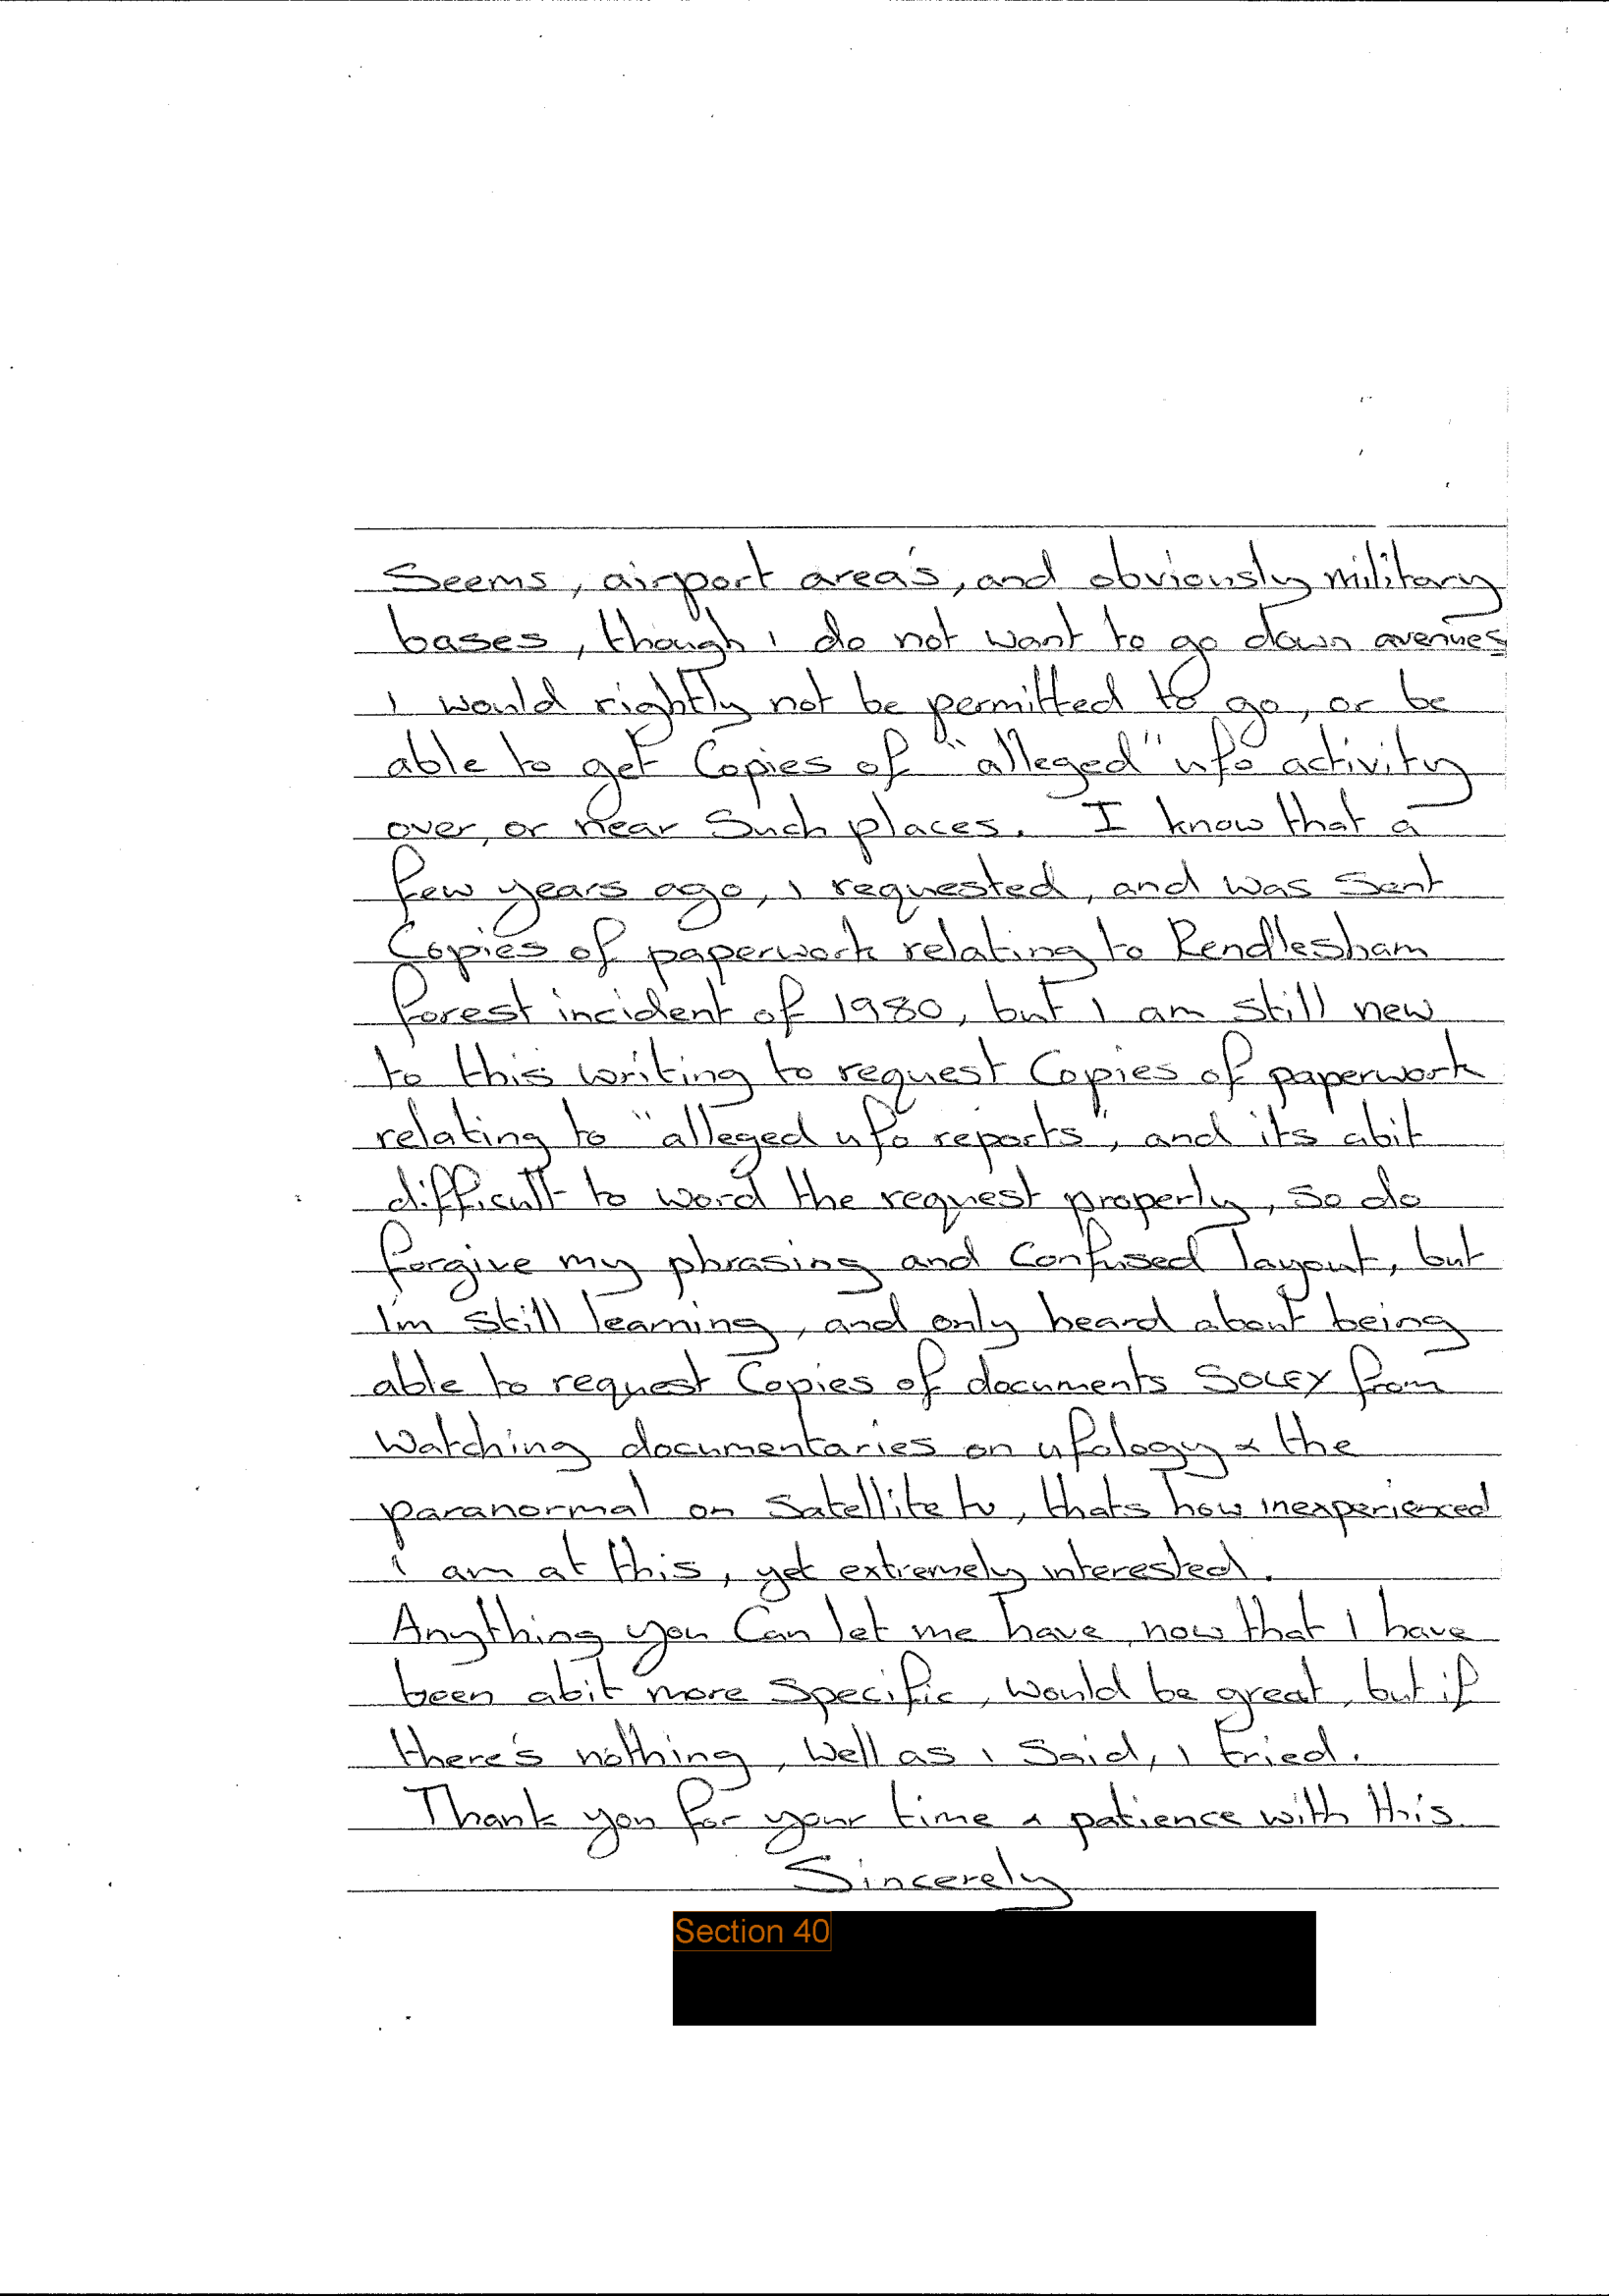 Seems, airport area's, and obviously military
bases, though i do not want to go down avenues
i would rightly not be permitted to go, or be
able to get Copies of "alleged" ufo activity
over, or near Such places. I know that a
few years ago, i requested, and was Sent
Copies of paperwork relating to Rendlesham
forest incident of 1980, but i am still new
to this writing to request Copies of paperwork
relating to "alleged ufo reports", and its abit
difficult to word the request properly, so do
forgive my phrasing and Confused layout, but
I'm still learning, and only heard about being
able to request Copies of documents SOLEY from
Watching documentaries on ufology & the
paranormal on Satellite tv, thats how inexperienced
i am at this, yet extremely interested.
Anything you Can let me have, now that I have
been abit more Specific, would be great, but if
there's nothing, Well as i Said, i tried.
Thank you for your time & patience with this
Sincerely
Section 40